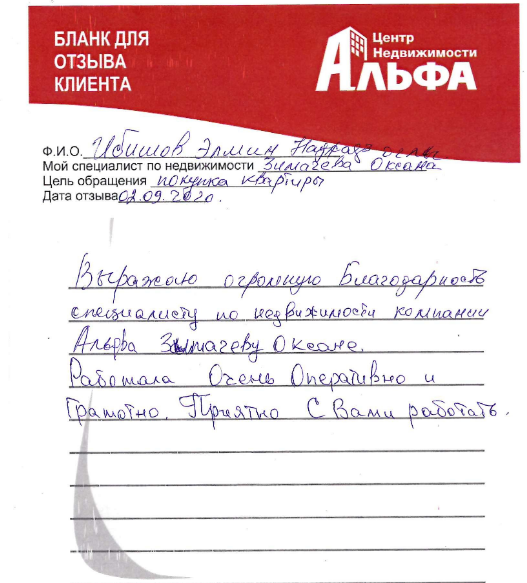 БЛАНК ДЛЯ
ОТЗЫВА
КЛИЕНТА
Центр
Недвижимости
АЛЬФА
Ф.И.О. Ибишов Элмин оглы
Мой специалист по недвижимости Зимачева Оксана
Цель обращения покупка квартиры
Дата отзыва 02.09.2020.
Выражаю огромную Благодарность
специалисту по недвижимости компании
Альфа Зимачеву Оксане.
Работала Очень Оперативно и
Грамотно. Приятно С Вами работать.